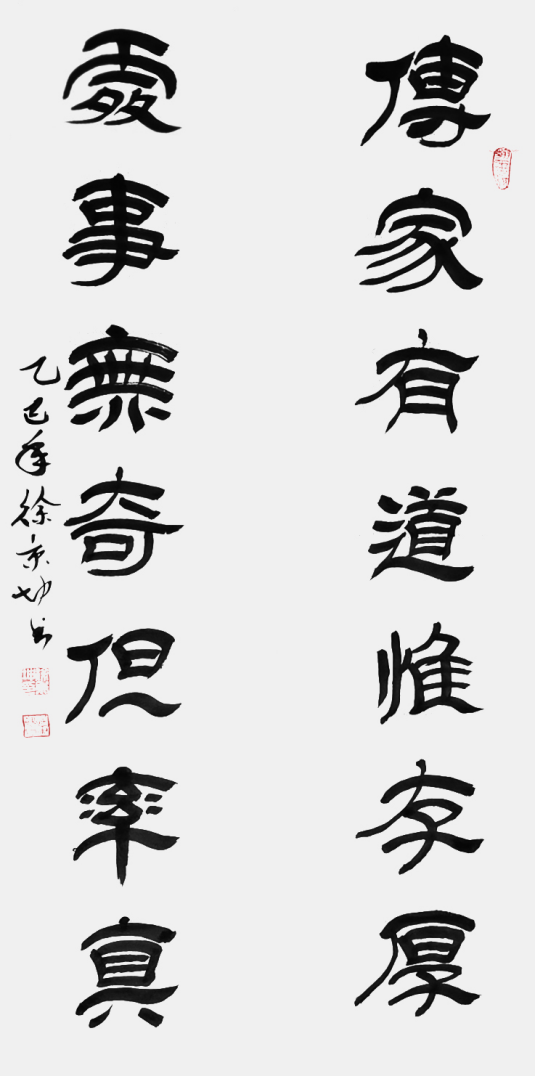 傳家有道惟存厚
處事無奇但率真
乙巳年徐京